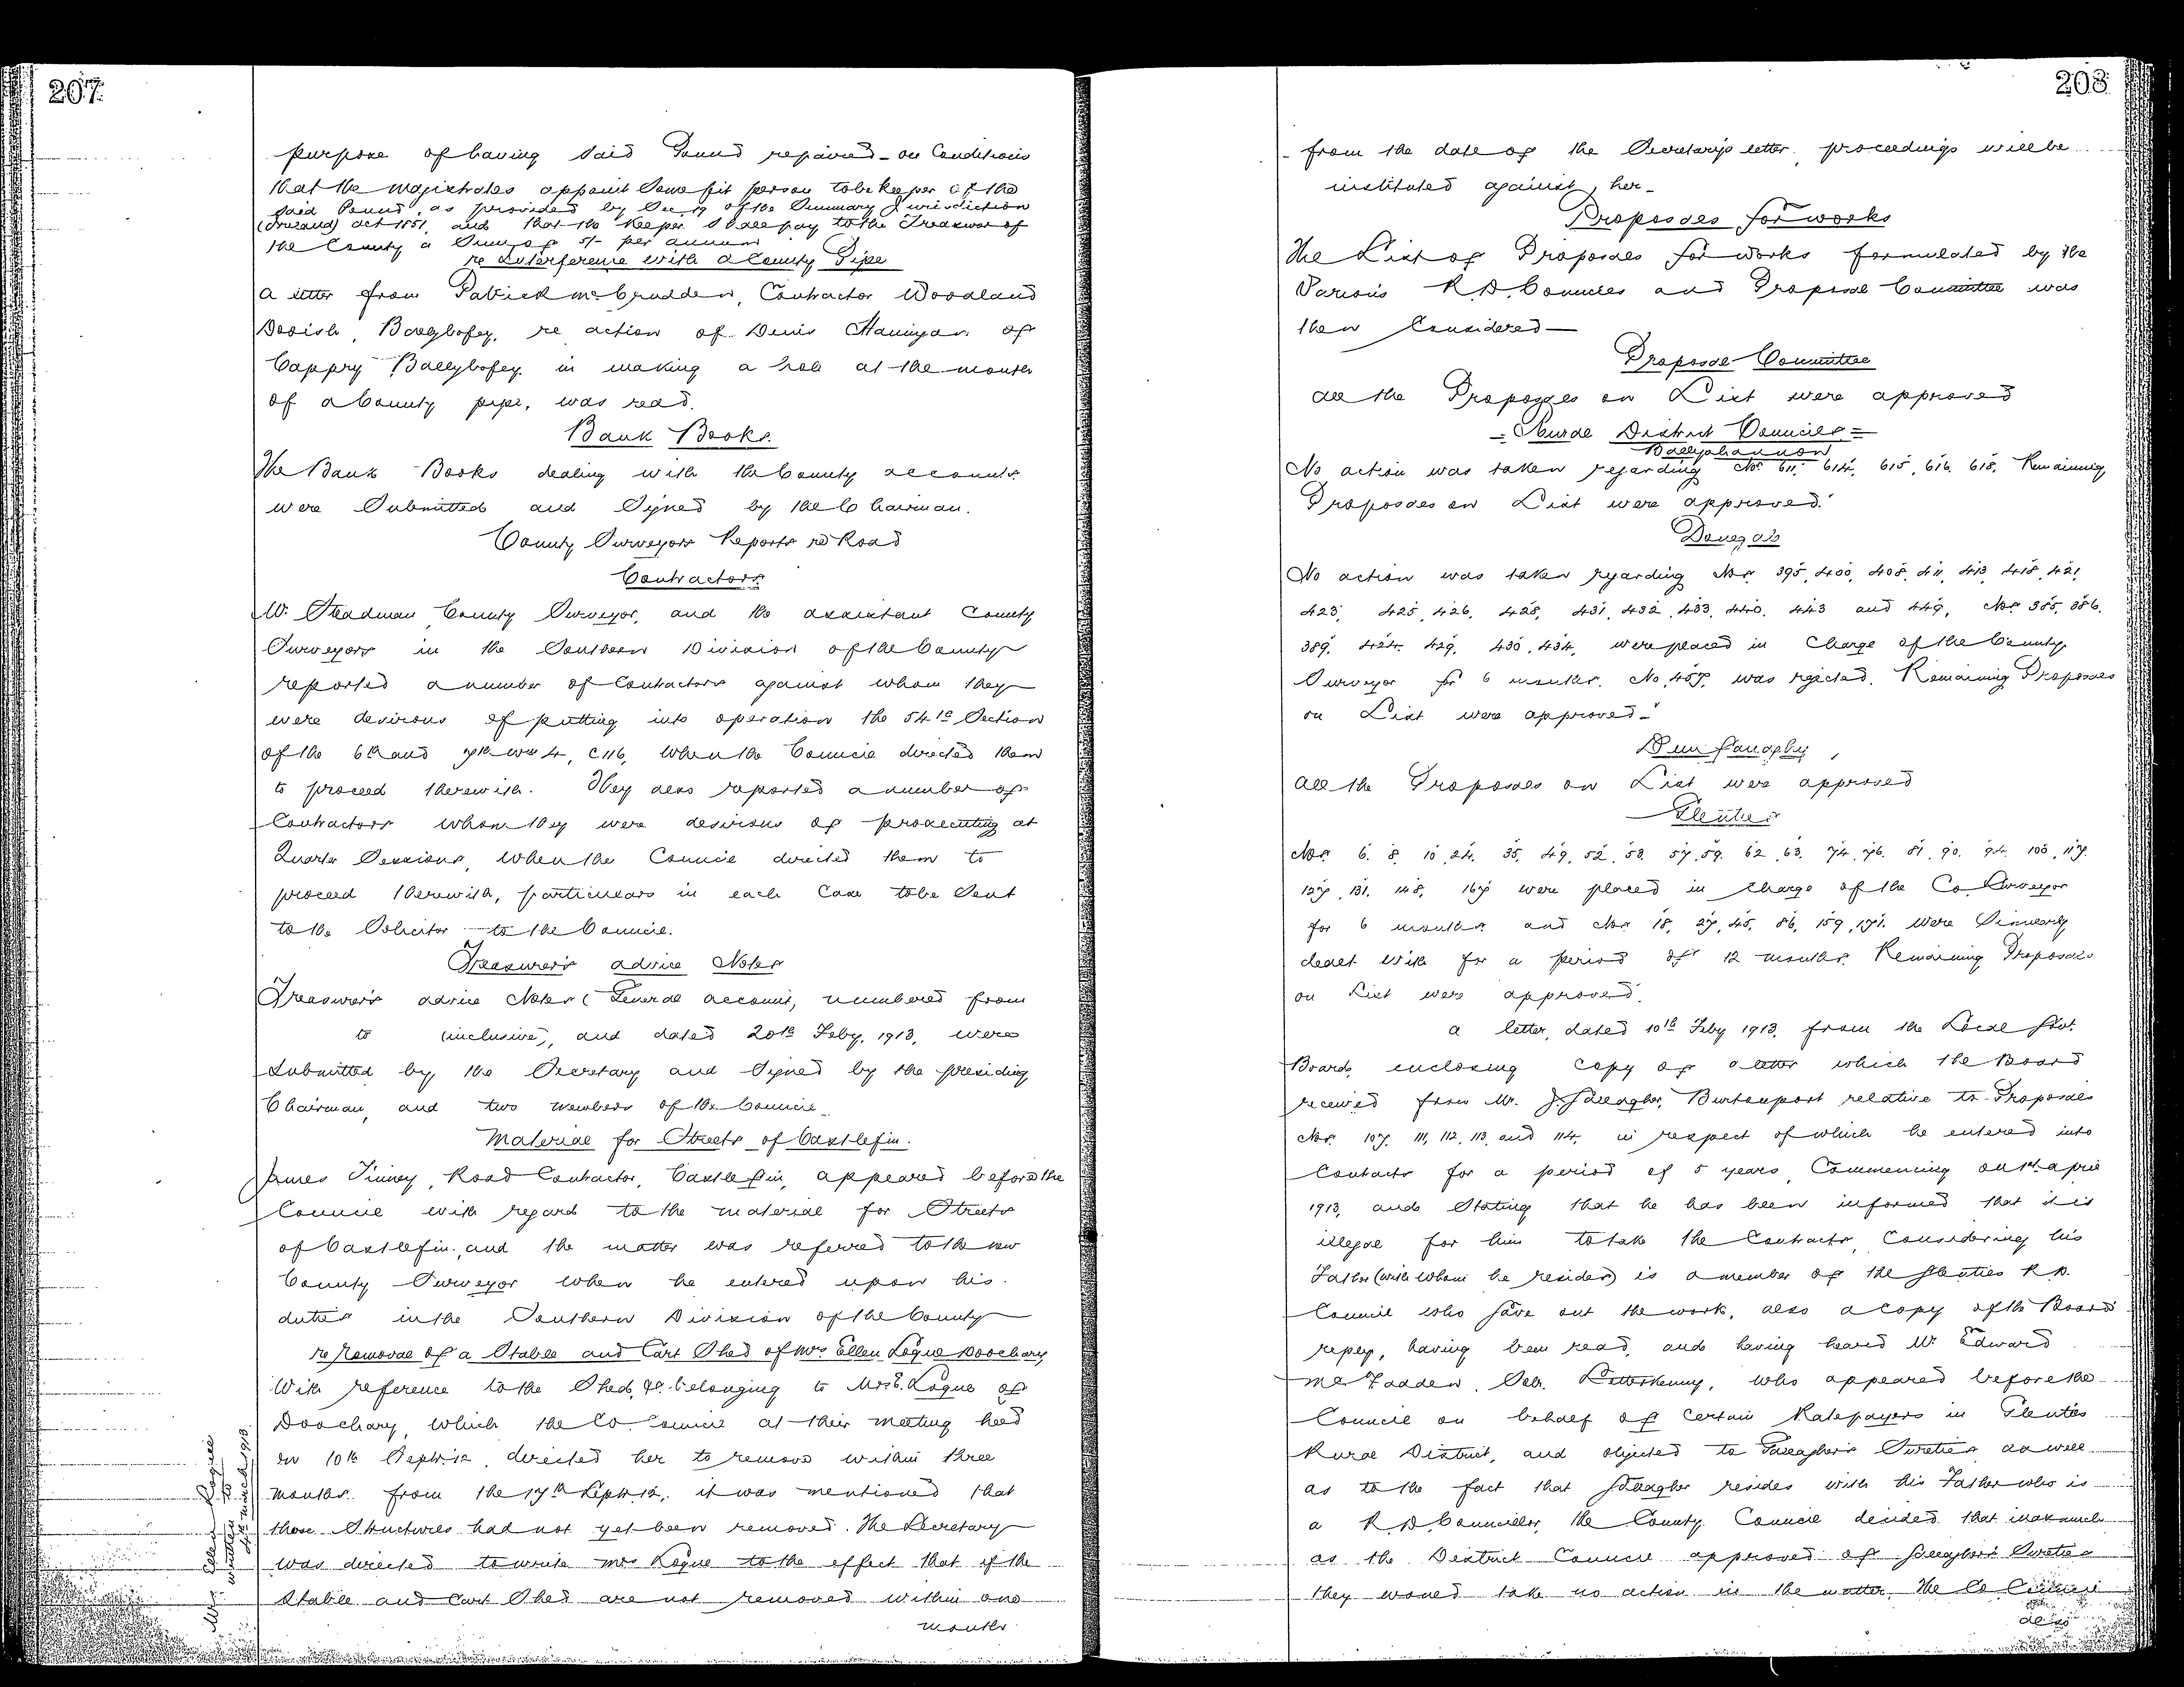 207
purpose of having said Pound repaired - on Conditions
that the magistrates appoint some fit person to be keeper of the
said Pound, as provided by Sec. 19 of the Summary Jurisdiction
(Ireland) Act 1851, and that the Keeper shall pay to the Treasurer of
the County a Sum of 5/- per annum
re Interference with a County Pipe
A letter from Patrick McCrudden, Contractor Woodland
Ballybofey, re action of Denis Hannigan of
Cappry Ballybofey in making a hole at the mouth
of a County pipe, was read.
Bank Books.
The Bank Books dealing with the County accounts
were Submitted and Signed by the Chairman.
County Surveyors Reports re Road
Contractors
Mr. Steadman County Surveyor, and the assistant County
Surveyors in the Southern Division of the County
reported a number of Contractors against whom they
were desirous of putting into operation the 54th Section
of the 6th and 7th Wm 4, C 116, when the Council directed them
to proceed therewith. They also reported a number of
Contractors whom they were desirous of prosecuting at
Quarter Sessions, when the Council directed them to
proceed therewith, particulars in each Case to be Sent
to the Solicitor to the Council.
Treasurer's advice Notes
Treasurer's advice Notes (General account, numbered from
to (inclusive), and dated 20th Feby. 1913, were
Submitted by the Secretary and Signed by the presiding
Chairman, and two members of the Council
Material for Streets of Castlefin.
James Tinney, Road Contractor, Castlefin, appeared before the
Council with regard to the material for Streets
of Castlefin, and the matter was referred to the new
County Surveyor when he entered upon his
duties in the Southern Division of the County
re Removal of a Stable and Cart Shed of Mrs Ellen Logue Doochary
With reference to the Shed, &c. belonging to Mrs E. Logue of
Doochary, which the Co. Council at their meeting held
on 10th Sept. 12, directed her to remove within three
months from the 17th Sept. 12, it was mentioned that
those Structures had not yet been removed. The Secretary
was directed to write Mrs Logue to the effect that if the
Stable and Cart Shed are not removed within one
month
Mrs Ellen Logue
written
4th March 1913
208
from the date of the Secretary's letter, proceedings will be
instituted against her -
Proposals for works
The List of Proposals for works formulated by the
Various R.D. Councils and Proposal Committee was
then Considered -
Proposal Committee
All the Proposals on List were approved
= Rural District Councils =
Ballyshannon
No action was taken regarding Nos 611, 614, 615, 616, 618. Remaining
Proposals on List were approved.
Donegal
No action was taken regarding Nos. 395, 400, 408, 411, 413, 418, 421,
423, 425, 426, 428, 431, 432, 433, 440, 443 and 449, Nos 385, 386,
389, 424, 429, 430, 434, were placed in Charge of the County
Surveyor for 6 months. No. 457 was rejected. Remaining Proposals
on List were approved -
Dunfanaghy
All the Proposals on List were approved
Glenties
Nos. 6, 8, 10, 24, 35, 49, 52, 53, 57, 59, 62, 63, 74, 76, 81, 90, 94, 100, 117,
127, 131, 148, 167 were placed in Charge of the Co. Surveyor
for 6 months and Nos. 18, 27, 45, 86, 159, 171. Were Similarly
dealt with for a period of 12 months. Remaining Proposals
on List were approved.
A letter, dated 10th Feby 1913, from the Local Govt.
Board, enclosing Copy of a letter which the Board
received from Mr. J. Gallagher, Burtonport relative to Proposals
Nos. 107, 111, 112, 113, and 114, in respect of which he entered into
Contracts for a period of 5 years Commencing on 1st. April
1913, and Stating that he has been informed that it is
illegal for him to take the Contracts, Considering his
Father (with whom he resides) is a member of the Glenties R.D.
Council who gave out the work, also a copy of the Boards
reply, having been read, and having heard Mr Edward
McFadden, Solr. Letterkenny, who appeared before the
Council on behalf of Certain Ratepayers in Glenties
Rural District, and objected to Gallagher's Sureties as well
as to the fact that Gallagher resides with his Father who is
a R.D. Councillor, the County Council decided that inasmuch
as the District Council approved of Gallagher's Sureties
they would take no action in the matter. The Co. Council
also